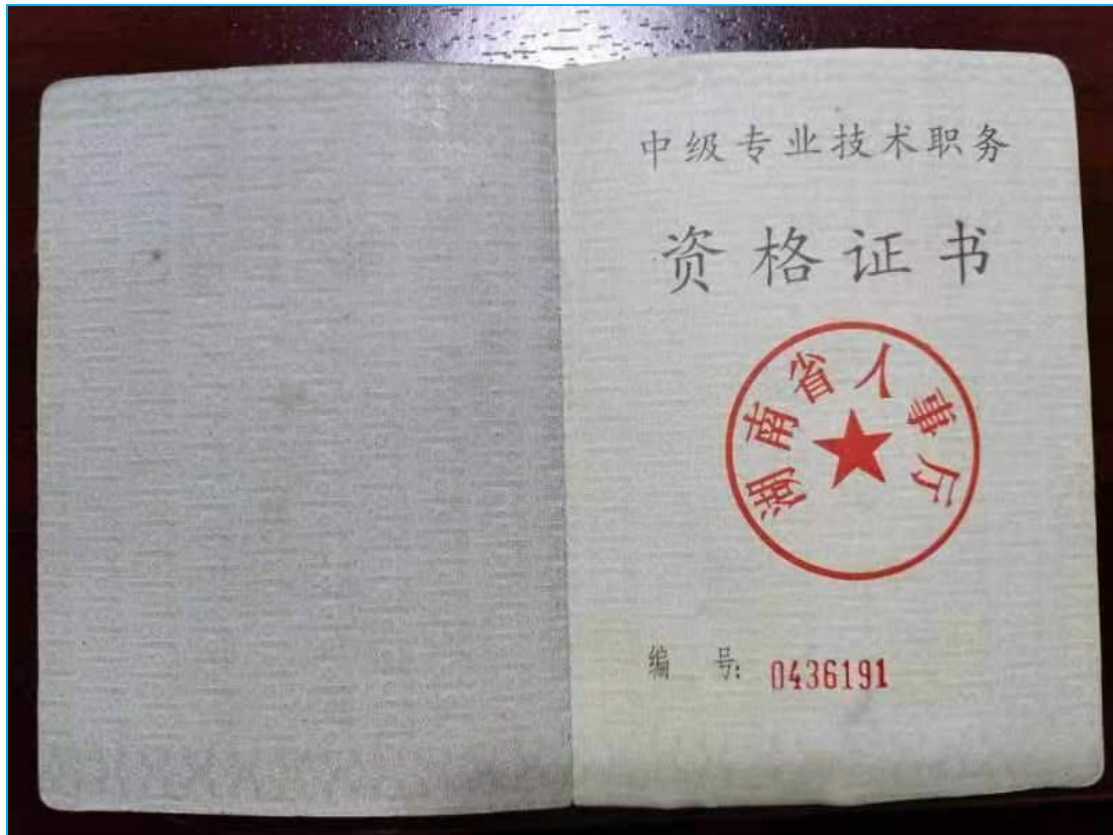 中级专业技术职务
资格证书
湖南省人事厅
编 号: 0436191